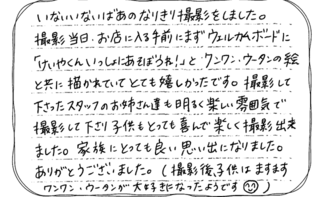 いないいないばあのなりきり撮影をしました。
撮影当日、お店に入る手前にまずウェルカムボードに
「けいやくん いっしょにあそぼうね!」と ワンワン・ウータンの絵
と共に描かれていてとても嬉しかったです。撮影して
下さったスタッフのお姉さん達も明るく楽しい雰囲気で
撮影して下さり子供もとても喜んで楽しく撮影出来
ました。家族にとても良い思い出になりました。
ありがとうございました。(撮影後、子供はますます
ワンワン・ウータンが大好きになったようです)